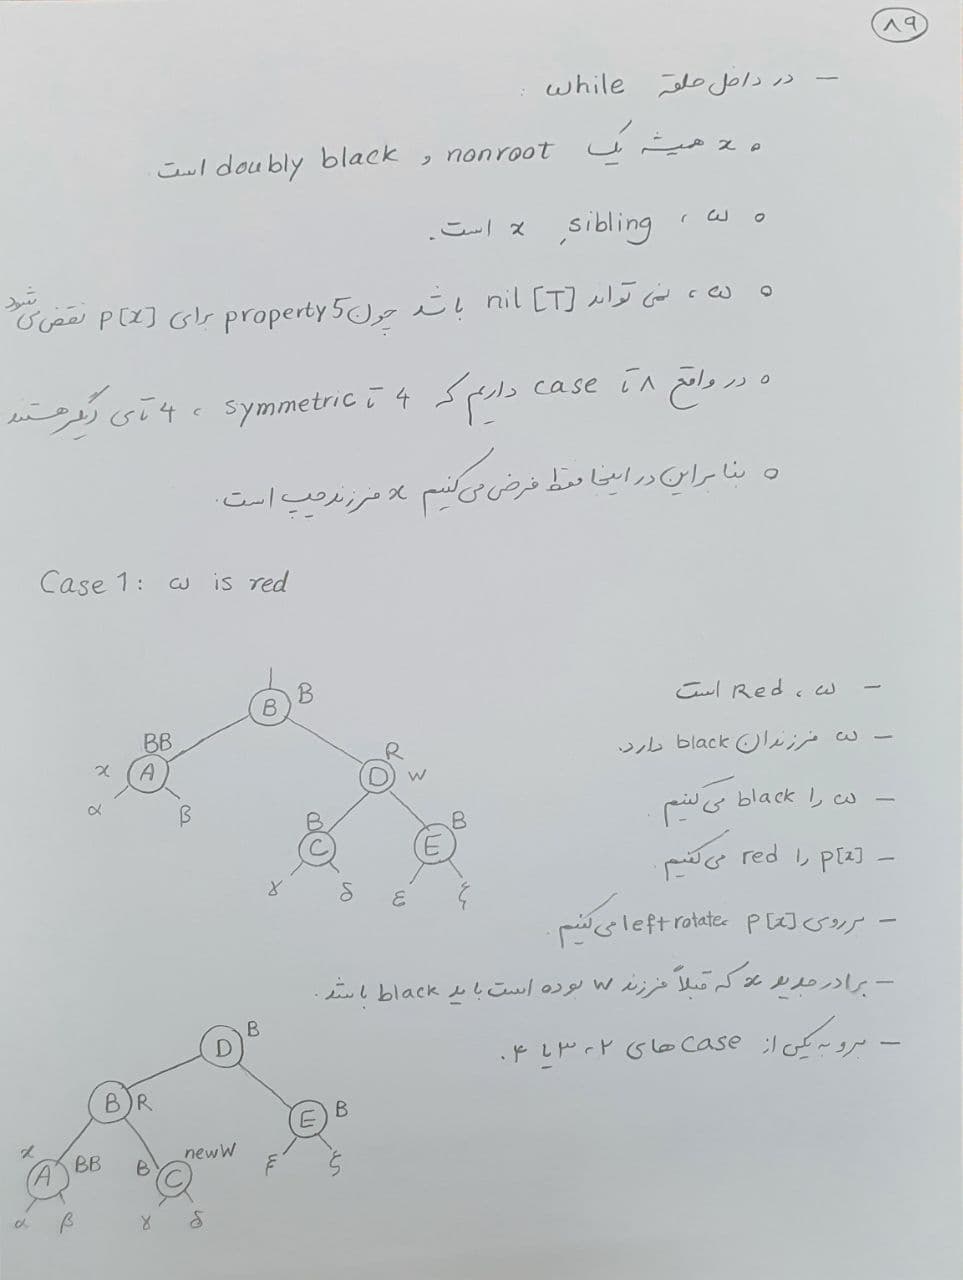 ۸۹
– در داخل حلقه while :
○ x همیشه یک nonroot و doubly black است.
○ w، sibling x است.
○ w، نمی تواند nil [T] باشد چون property 5 برای p[x] نقض می شود
○ در واقع ۸ تا case داریم که 4 تا symmetric، 4 تای دیگر هستند
○ بنابراین در اینجا فقط فرض می کنیم x فرزند چپ است.
Case 1: w is red
– w، Red است
– w فرزندان black دارد.
– w را black می کنیم.
– p[x] را red می کنیم.
– بر روی p[x]، left rotate می کنیم.
– برادر جدید x که قبلاً فرزند w بوده است باید black باشد.
– برو به یکی از case های ۲، ۳ یا ۴.
B B
BB R
x A D w
α β B B
C E
γ δ ε ξ
D B
B R E B
x newW
A BB B C ξ ξ
α β γ δ